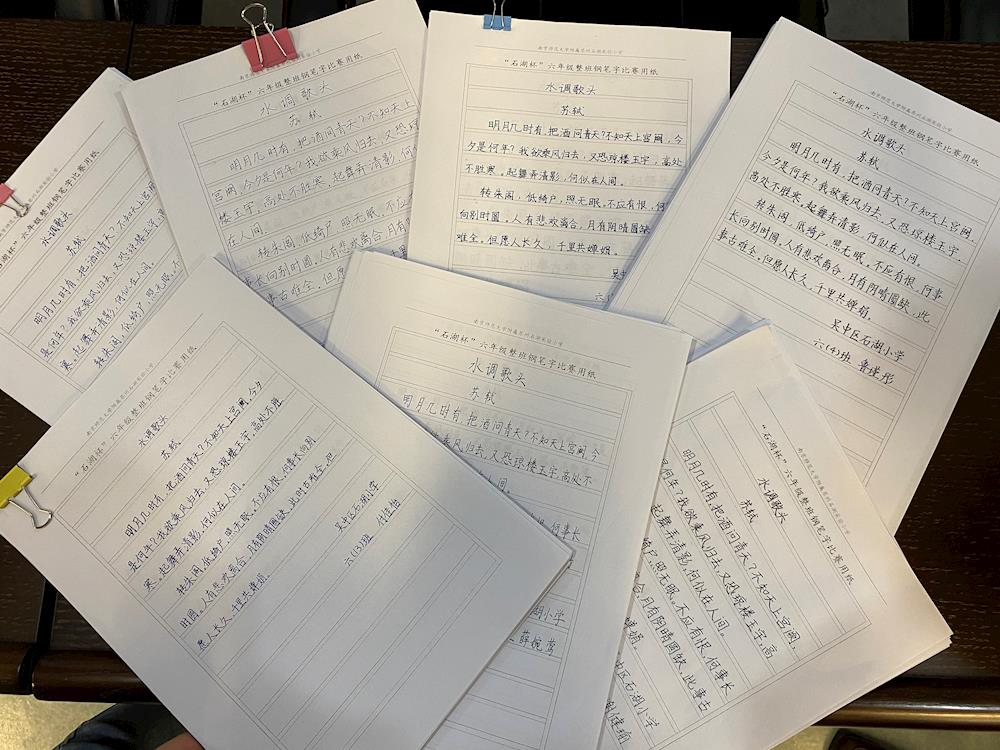 水调歌头
苏轼
明月几时有,把酒问青天?不知
是何年?我欲乘风归去,又恐琼楼玉宇,高
寒。起舞弄清影,何似在人间。
转朱阁,低绮户,照无眠。
“石湖杯”六年级整班钢笔字比赛用纸
水调歌头
苏轼
明月几时有,把酒问青天?不知天上
宫阙,今夕是何年?我欲乘风归去,又恐琼
楼玉宇,高处不胜寒。起舞弄清影,何
在人间。
转朱阁,低绮户,照无眠。不应
长向别时圆,人有悲欢离合,月有
事古难全。但愿
南京师范大学附属苏州石湖实验小学
“石湖杯”六年级整班钢笔字比赛用纸
水调歌头
苏轼
明月几时有,把酒问青天?不知天上宫阙,今
夕是何年?我欲乘风归去,又恐琼楼玉宇,高处
不胜寒。起舞弄清影,何似在人间。
转朱阁,低绮户,照无眠。不应有恨,何
向别时圆。人有悲欢离合,月有阴晴圆缺
难全。但愿人长久,千里共婵娟。
吴中
六(
“石湖杯”六年级整班钢笔字比赛用纸
水调歌头
苏轼
明月几时有,把酒问青天?不知天上宫阙,
今夕是何年?我欲乘风归去,又恐琼楼玉宇,
高处不胜寒。起舞弄清影,何似在人间。
转朱阁,低绮户,照无眠。不应有恨,何事
长向别时圆,人有悲欢离合,月有阴晴圆缺,此
事古难全。但愿人长久,千里共婵娟。
吴中区石湖小学
六(4)班
“石湖杯”六年级整班钢笔字比赛用纸
水调歌头
苏轼
明月几时有,把酒问青天?不知天上宫阙,今夕
是何年?我欲乘风归去,又恐琼楼玉宇,高处不胜
寒。起舞弄清影,何似在人间。
转朱阁,低绮户,照无眠。不应有恨,何事长向别
时圆。人有悲欢离合,月有阴晴圆缺,此时古难全。但
愿人长久,千里共婵娟。
吴中区石湖小学
六(13)班 付佳怡
南京师范大学附属苏州石湖实验小学
“石湖杯”六年级整班钢笔字比赛用纸
水调歌头
苏轼
明月几时有,把酒问青天?不知天上宫阙,今
乘风归去,又恐琼楼玉宇,高处不
间。
何事长
湖小学
薛婉莺
“石湖杯”六年级整班钢笔字比赛用纸
水调歌头
苏轼
明月几时有,把酒问青天?不知天上宫阙,
是何年?我欲乘风归去,又恐琼楼玉宇,高
起舞弄清影,何似在人间。
绮户,照无眠。不应有恨,何事长
合,月有阴晴圆缺,此事古
婵娟。
中区石湖小学